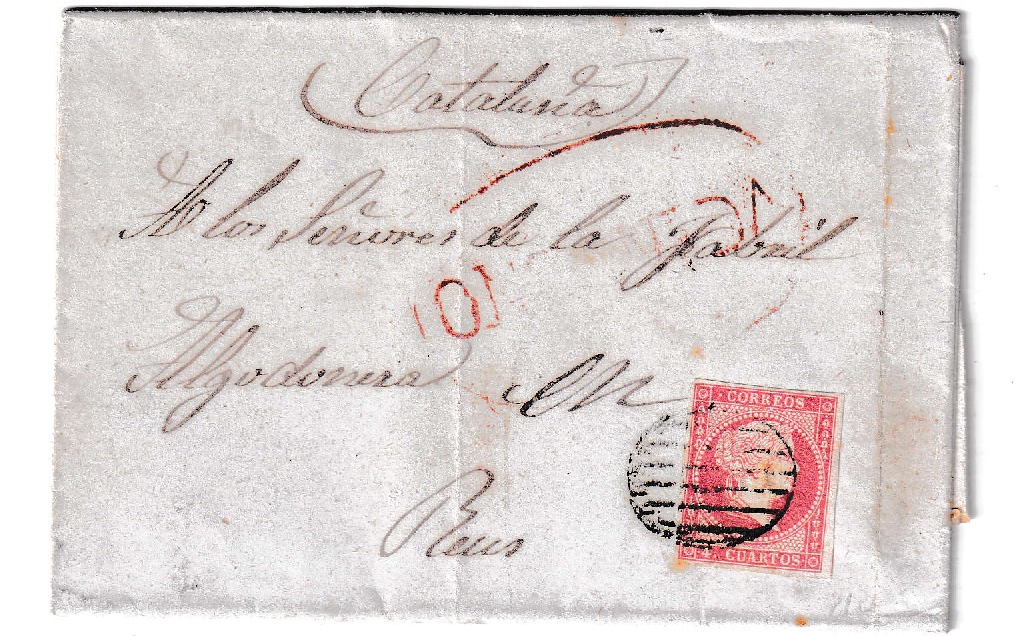 Cataluña
A los Señores de la Fabril
Algodonera en
Reus
CORREOS
4 CUARTOS